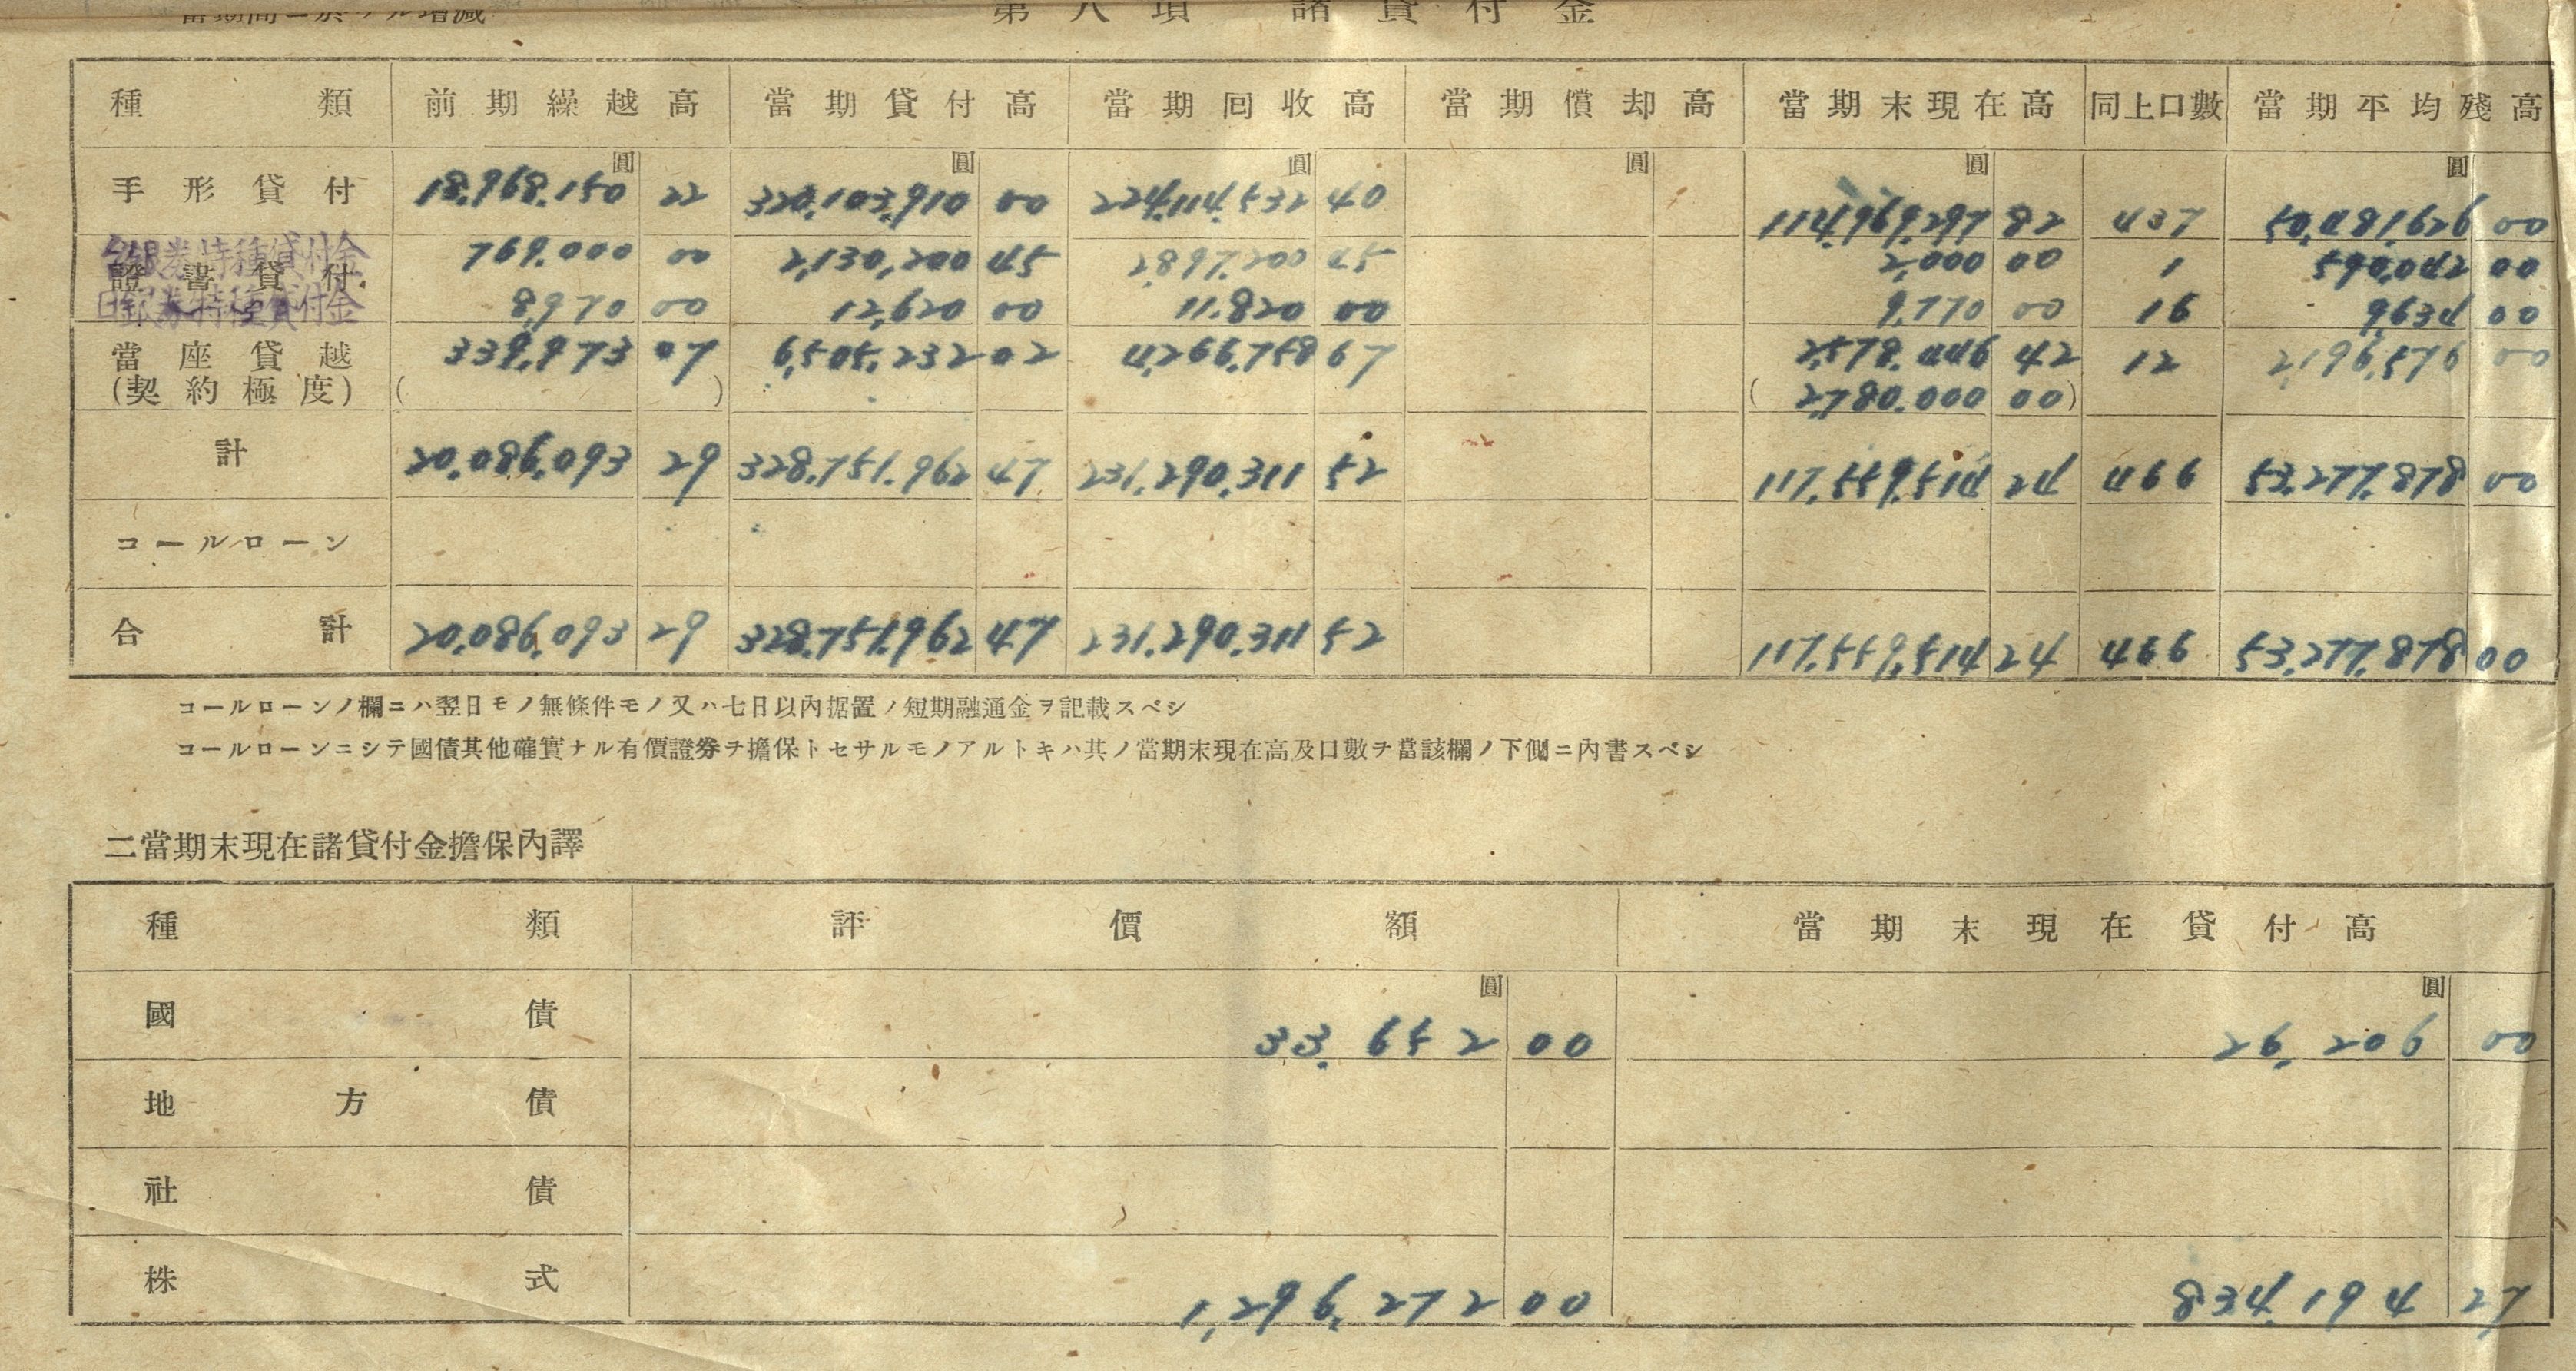 當期間ニ於ケル增減
第八項 諸貸付金
種類 前期繰越高 當期貸付高 當期回收高 當期償却高 當期末現在高 同上口數 當期平均殘高
圓 圓 圓 圓 圓 圓
手形貸付 18,968,150 22 320,103,910 00 224,114,532 40 114,969,297 82 437 50,481,626 00
銀券特種貸付金 769,000 00 2,130,200 45 2,897,200 45 2,000 00 1 590,042 00
證書貸付
日銀券特種貸付金 8,970 00 12,620 00 11,820 00 9,770 00 16 9,634 00
當座貸越 339,973 07 6,505,232 02 4,266,758 67 2,578,446 42 12 2,196,576 00
(契約極度) ( ) (2,780,000 00)
計 20,086,093 29 328,751,962 47 231,290,311 52 117,559,514 24 466 53,277,878 00
コールローン
合計 20,086,093 29 328,751,962 47 231,290,311 52 117,559,514 24 466 53,277,878 00
コールローンノ欄ニハ翌日モノ無條件モノ又ハ七日以內据置ノ短期融通金ヲ記載スベシ
コールローンニシテ國債其他確實ナル有價證券ヲ擔保トセサルモノアルトキハ其ノ當期末現在高及口數ヲ當該欄ノ下側ニ內書スベシ
二當期末現在諸貸付金擔保內譯
種類 評價額 當期末現在貸付高
圓 圓
國債 33,652 00 26,206 00
地方債
社債
株式 1,296,272 00 834,194 27